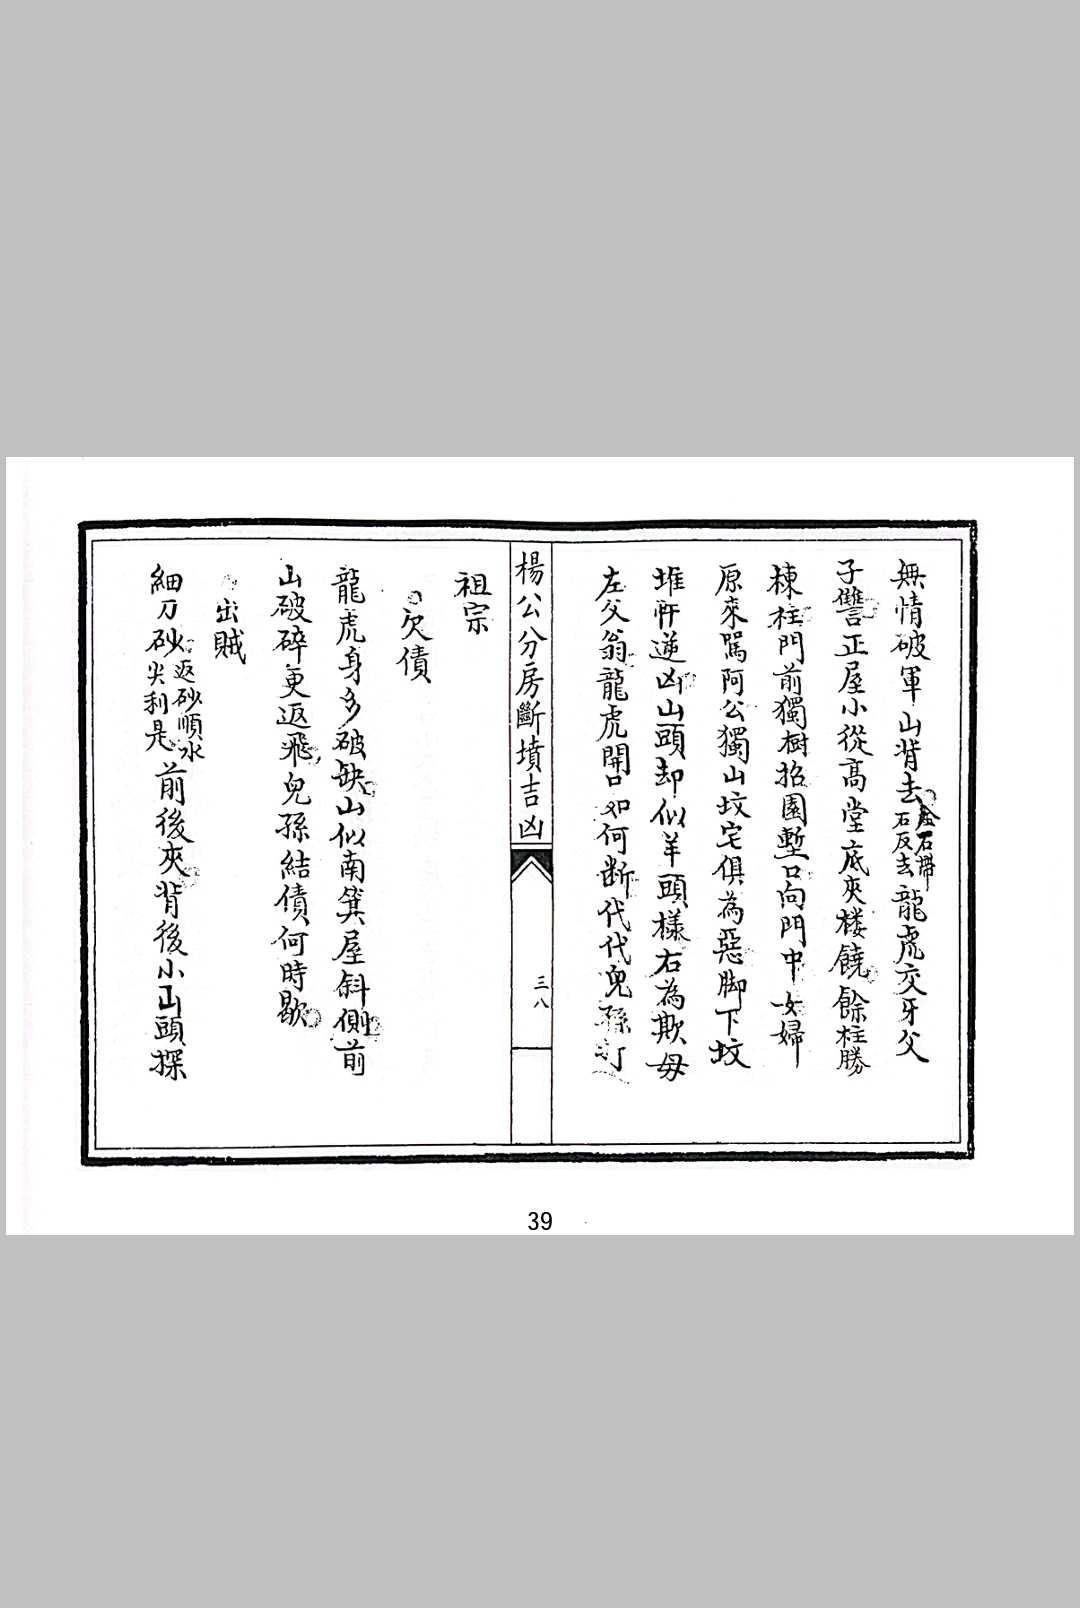 無情破軍山背去石墙石反去龍虎交牙父
子讐正屋小從高堂底夾楼饒餘柱勝
棟柱門前獨樹招園塹口向門中女婦
原來罵阿公獨山坟宅俱為惡脚下坟
堆逆凶山頭却似羊頭樣右為欺母
左父翁龍虎開口如何断代代兒孫打
楊公分房斷墳吉凶
三八
祖宗
欠債
龍虎身多破缺山似南箕屋斜側前
山破碎更返飛兒孫結債何時歇
出賊
細刀砂返砂順水尖利是前後夾背後小山頭探
39